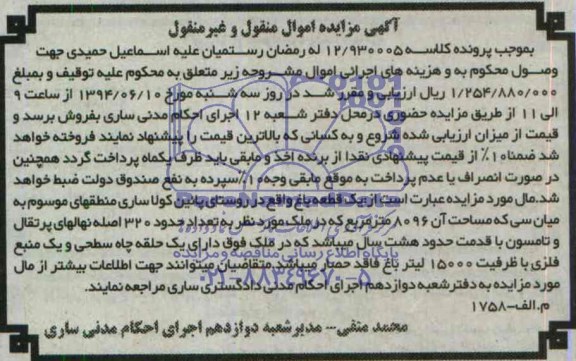 آگهی مزایده اموال منقول و غیرمنقول
بموجب پرونده کلاسه ۱۲/۹۳۰۰۰۵ له رمضان رستمیان علیه اسماعیل حمیدی جهت
وصول محکوم به و هزینه های اجرائی اموال مشروحه زیر متعلق به محکوم علیه توقیف و بمبلغ
۱/۲۵۴/۸۸۰/۰۰۰ ریال ارزیابی و مقرر شد در روز سه شنبه مورخ ۱۳۹۴/۰۶/۱۰ از ساعت ۹
الی ۱۱ از طریق مزایده حضوری درمحل دفتر شعبه ۱۲ اجرای احکام مدنی ساری بفروش برسد و
قیمت از میزان ارزیابی شده شروع و به کسانی که بالاترین قیمت را پیشنهاد نمایند فروخته خواهد
شد ضمنا ۱۰٪ از قیمت پیشنهادی نقدا از برنده اخذ و مابقی باید ظرف یکماه پرداخت گردد همچنین
در صورت انصراف یا عدم پرداخت به موقع مابقی وجه ۱۰٪ سپرده به نفع صندوق دولت ضبط خواهد
شد.مال مورد مزایده عبارت است از یک قطعه باغ واقع در روستای پائین کولا ساری منطقهای موسوم به
میان سی که مساحت آن ۸۰۹۶ متر مربع که در ملک مورد نظر به تعداد حدود ۳۲۰ اصله نهالهای پرتقال
و تامسون با قدمت حدود هشت سال میباشد که در ملک فوق دارای یک حلقه چاه سطحی و یک منبع
فلزی با ظرفیت ۱۵۰۰۰ لیتر باغ فاقد حصار میباشد.متقاضیان میتوانند جهت اطلاعات بیشتر از مال
مورد مزایده به دفتر شعبه دوازدهم اجرای احکام مدنی دادگستری ساری مراجعه نمایند.
م.الف-۱۷۵۸
محمد منفی-- مدیر شعبه دوازدهم اجرای احکام مدنی ساری
پایگاه اطلاع رسانی مناقصه و مزایده
۰۲۱-۸۸۳۴۹۶۷۰-۵